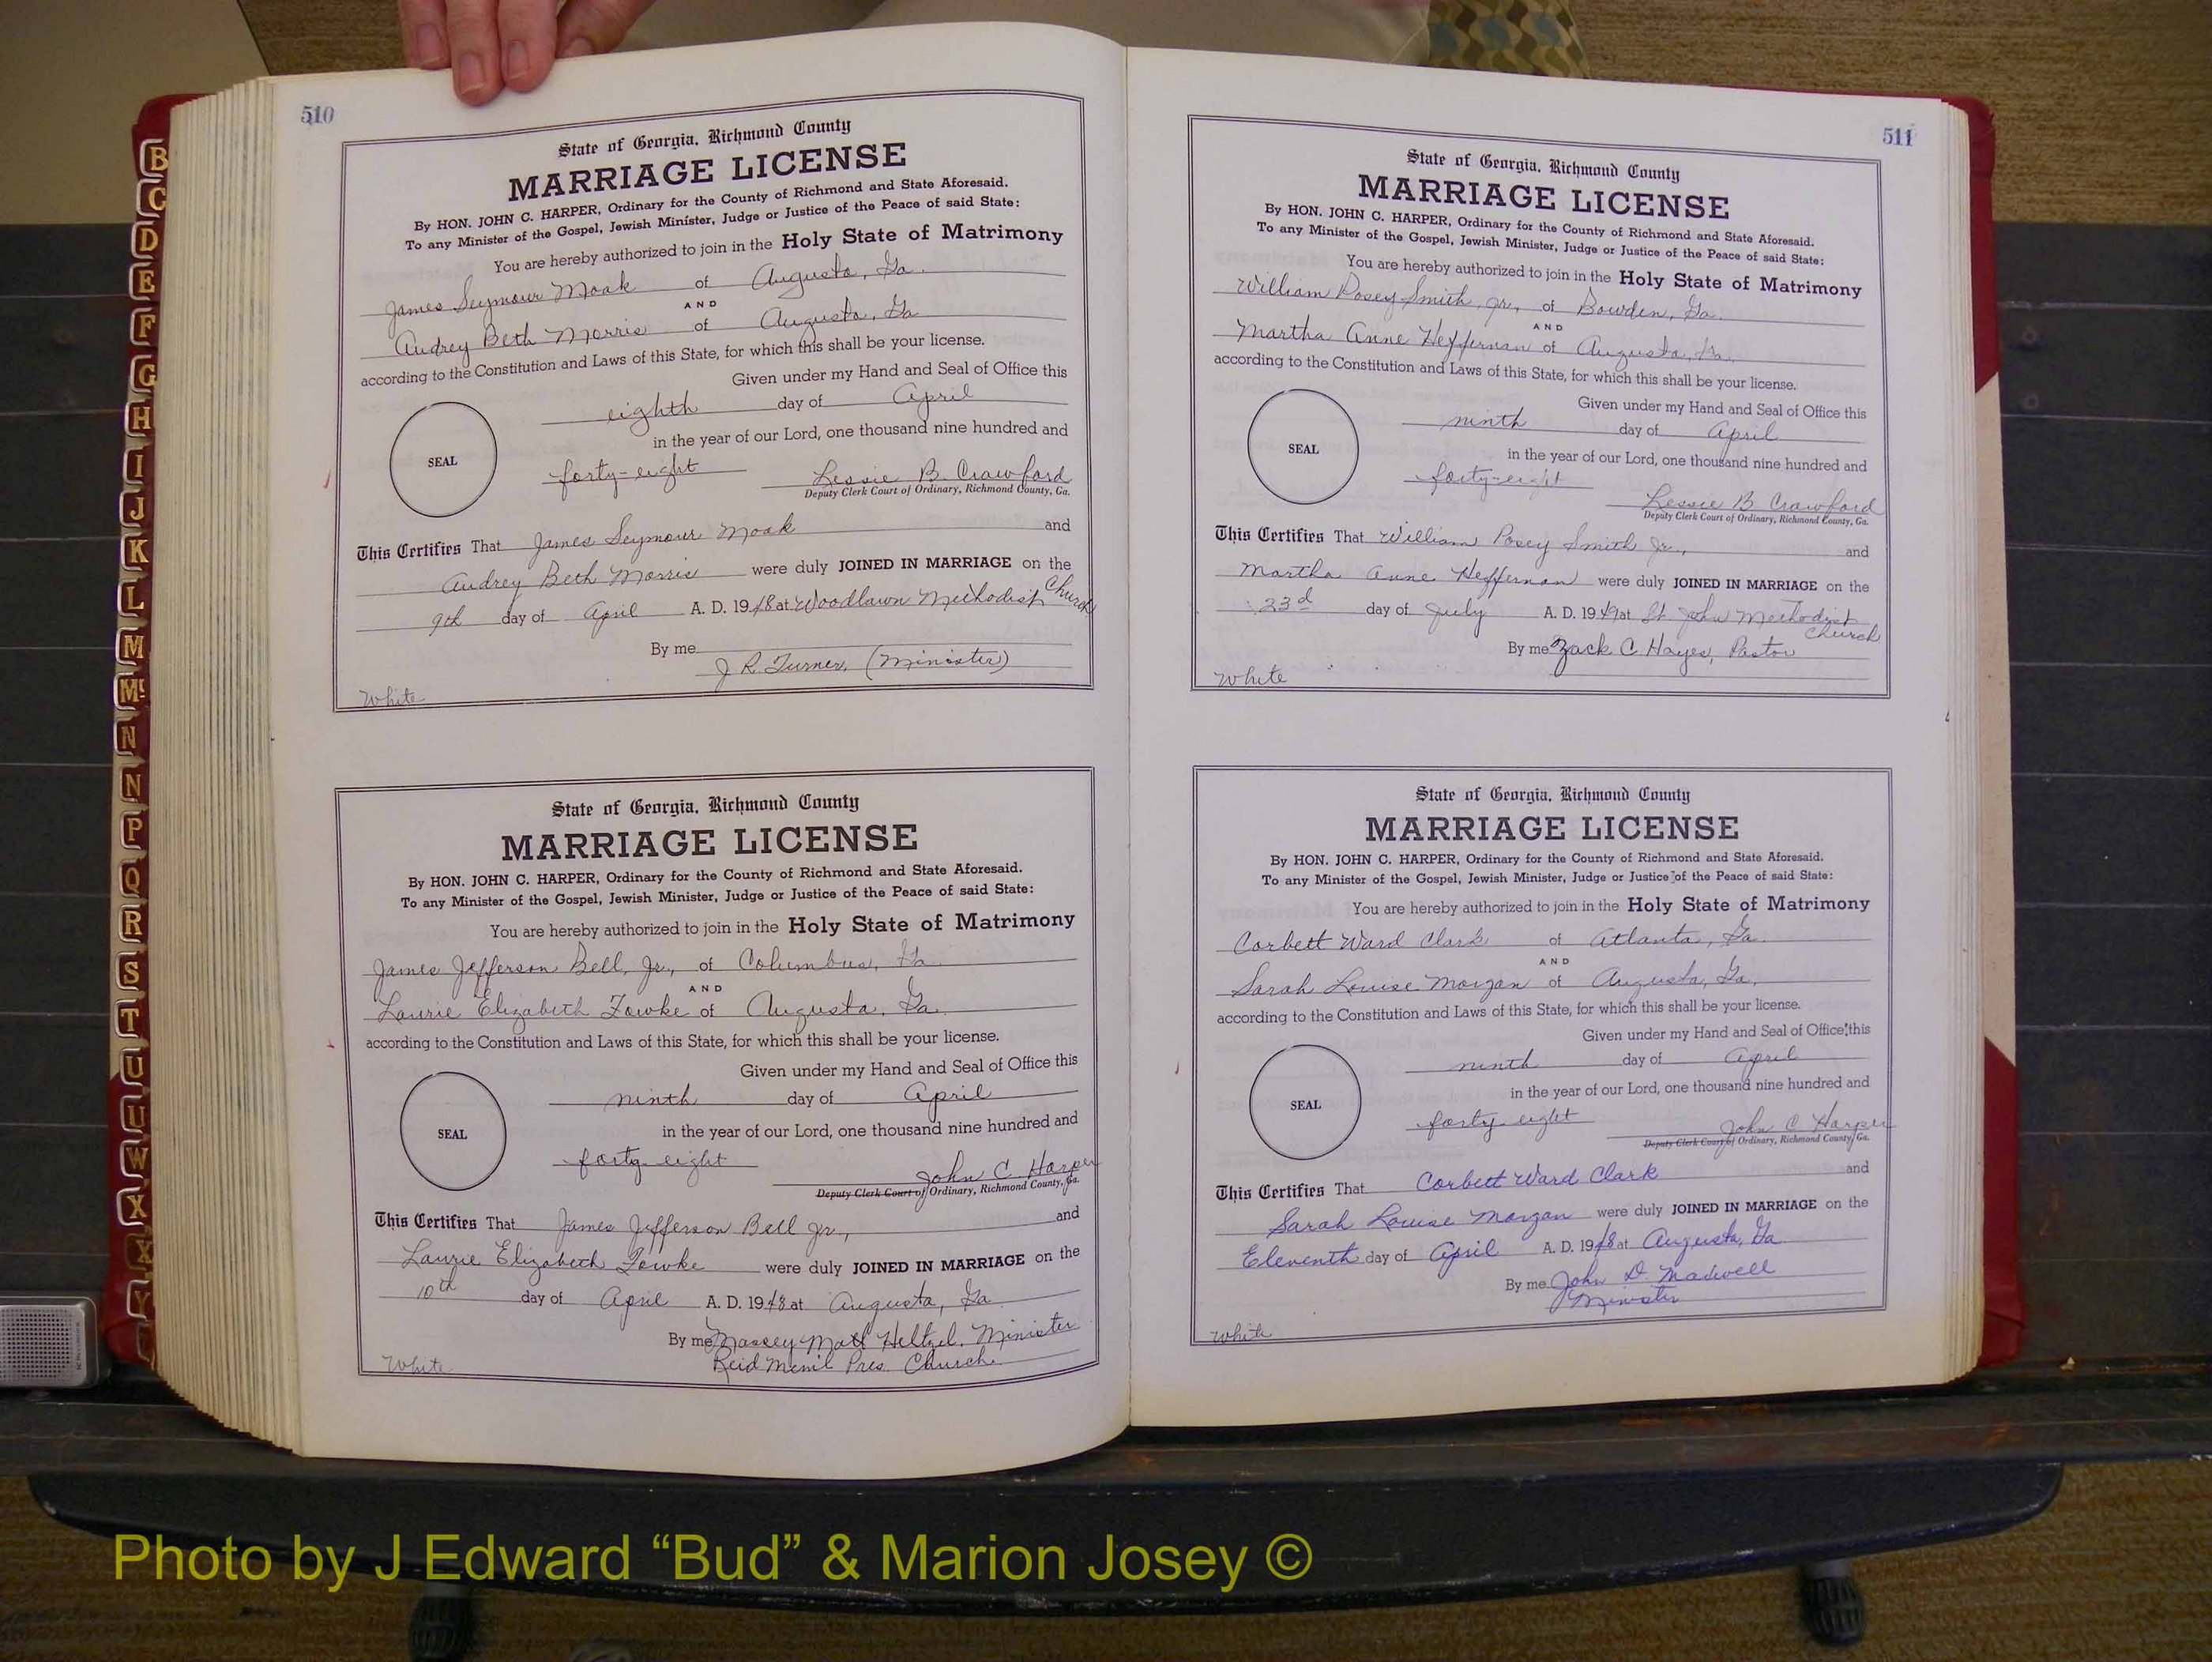 510
State of Georgia, Richmond County
MARRIAGE LICENSE
By HON. JOHN C. HARPER, Ordinary for the County of Richmond and State Aforesaid.
To any Minister of the Gospel, Jewish Minister, Judge or Justice of the Peace of said State:
You are hereby authorized to join in the Holy State of Matrimony
James Seymour Moak of Augusta, Ga.
AND
Audrey Beth Morris of Augusta, Ga
according to the Constitution and Laws of this State, for which this shall be your license.
Given under my Hand and Seal of Office this
eighth day of April
in the year of our Lord, one thousand nine hundred and
SEAL
forty-eight Lessie B. Crawford
Deputy Clerk Court of Ordinary, Richmond County, Ga.
This Certifies That James Seymour Moak and
Audrey Beth Morris were duly JOINED IN MARRIAGE on the
9th day of April A. D. 1948 at Woodlawn Methodist Church
By me
J. R. Turner, (Minister)
White
State of Georgia, Richmond County
MARRIAGE LICENSE
By HON. JOHN C. HARPER, Ordinary for the County of Richmond and State Aforesaid.
To any Minister of the Gospel, Jewish Minister, Judge or Justice of the Peace of said State:
You are hereby authorized to join in the Holy State of Matrimony
James Jefferson Bell, Jr., of Columbus, Ga.
AND
Laurie Elizabeth Fowke of Augusta, Ga.
according to the Constitution and Laws of this State, for which this shall be your license.
Given under my Hand and Seal of Office this
ninth day of April
in the year of our Lord, one thousand nine hundred and
SEAL
forty-eight John C. Harper
Deputy Clerk Court of Ordinary, Richmond County, Ga.
This Certifies That James Jefferson Bell Jr., and
Laurie Elizabeth Fowke were duly JOINED IN MARRIAGE on the
10th day of April A. D. 1948 at Augusta, Ga
By me Massey Mott Heltzel, Minister
Reid Meml Pres. Church.
White
511
State of Georgia, Richmond County
MARRIAGE LICENSE
By HON. JOHN C. HARPER, Ordinary for the County of Richmond and State Aforesaid.
To any Minister of the Gospel, Jewish Minister, Judge or Justice of the Peace of said State:
You are hereby authorized to join in the Holy State of Matrimony
William Posey Smith, Jr., of Bowden, Ga.
AND
Martha Anne Heffernan of Augusta, Ga.,
according to the Constitution and Laws of this State, for which this shall be your license.
Given under my Hand and Seal of Office this
ninth day of April
in the year of our Lord, one thousand nine hundred and
SEAL
forty-eight
Lessie B Crawford
Deputy Clerk Court of Ordinary, Richmond County, Ga.
This Certifies That William Posey Smith Jr., and
Martha Anne Heffernan were duly JOINED IN MARRIAGE on the
23d day of July A. D. 1949 at St John Methodist
Church
By me Zack C. Hayes, Pastor
White
State of Georgia, Richmond County
MARRIAGE LICENSE
By HON. JOHN C. HARPER, Ordinary for the County of Richmond and State Aforesaid.
To any Minister of the Gospel, Jewish Minister, Judge or Justice of the Peace of said State:
You are hereby authorized to join in the Holy State of Matrimony
Corbett Ward Clark of Atlanta, Ga.
AND
Sarah Louise Morgan of Augusta, Ga.
according to the Constitution and Laws of this State, for which this shall be your license.
Given under my Hand and Seal of Office this
ninth day of April
in the year of our Lord, one thousand nine hundred and
SEAL
forty eight John C Harper
Deputy Clerk Court of Ordinary, Richmond County, Ga.
This Certifies That Corbett Ward Clark and
Sarah Louise Morgan were duly JOINED IN MARRIAGE on the
Eleventh day of April A. D. 1948 at Augusta, Ga
By me John D. Maxwell
Minister
White
B
C
D
E
F
G
H
I
J
K
L
M
Mc
N
N
P
Q
R
S
T
U
U
W
X
X
Y
Photo by J Edward “Bud” & Marion Josey ©